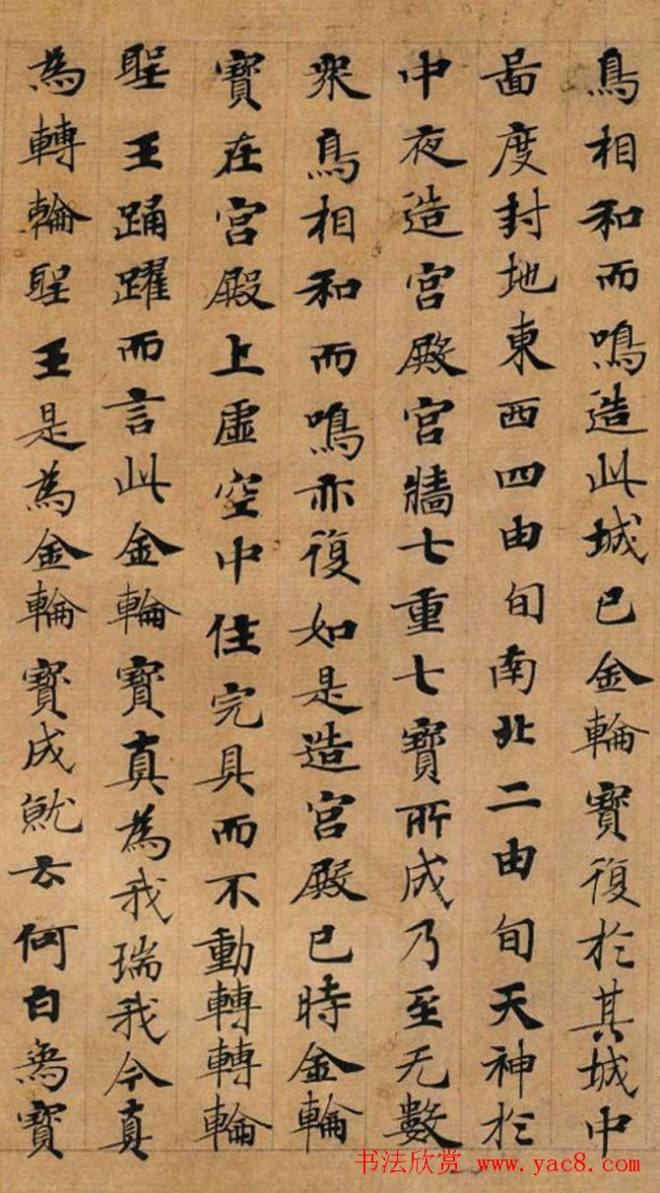 鳥相和而鳴造此城已金輪寶復於其城中
啚度封地東西四由旬南北二由旬天神於
中夜造宮殿宮牆七重七寶所成乃至无數
衆鳥相和而鳴亦復如是造宮殿已時金輪
寶在宮殿上虛空中住完具而不動轉轉輪
聖王踊躍而言此金輪寶真為我瑞我今真
為轉輪聖王是為金輪寶成就云何白為寶
书法欣赏 www.yac8.com